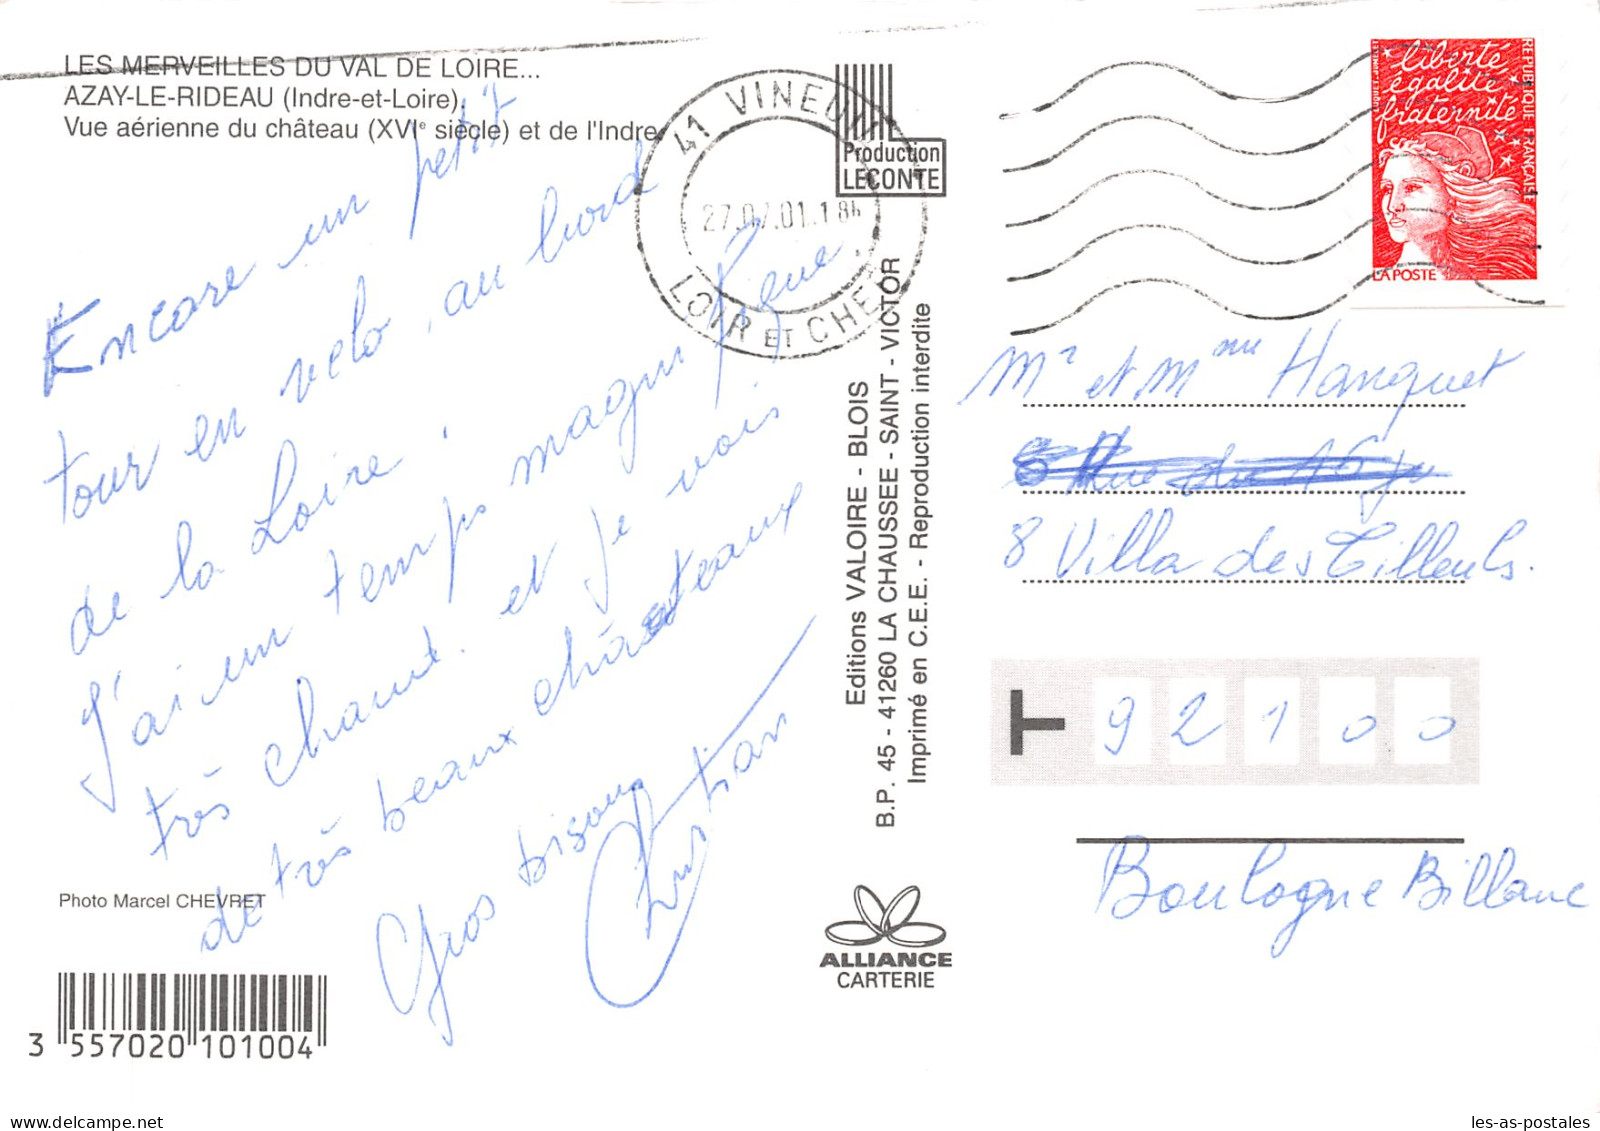 LES MERVEILLES DU VAL DE LOIRE...
AZAY-LE-RIDEAU (Indre-et-Loire).
Vue aérienne du château (XVIe siècle) et de l'Indre
Encore un petit
tour en velo, au bord
de la Loire !
J'ai un temps magnifique.
très chaud. et je vois
de très beaux châteaux
Gros bisous
Christian
Photo Marcel CHEVRET
3 557020 101004
41 VINEUIL
LOIR ET CHER
Production
LECONTE
Editions VALOIRE - BLOIS
B.P. 45 - 41260 LA CHAUSSEE - SAINT - VICTOR
Imprimé en C.E.E. - Reproduction interdite
ALLIANCE
CARTERIE
liberté
égalité
fraternité
REPUBLIQUE FRANÇAISE
LA POSTE
Mr et Mme Hanquet
8 Villa des Tilleuls.
92100
Boulogne Billanc
les-as-postales